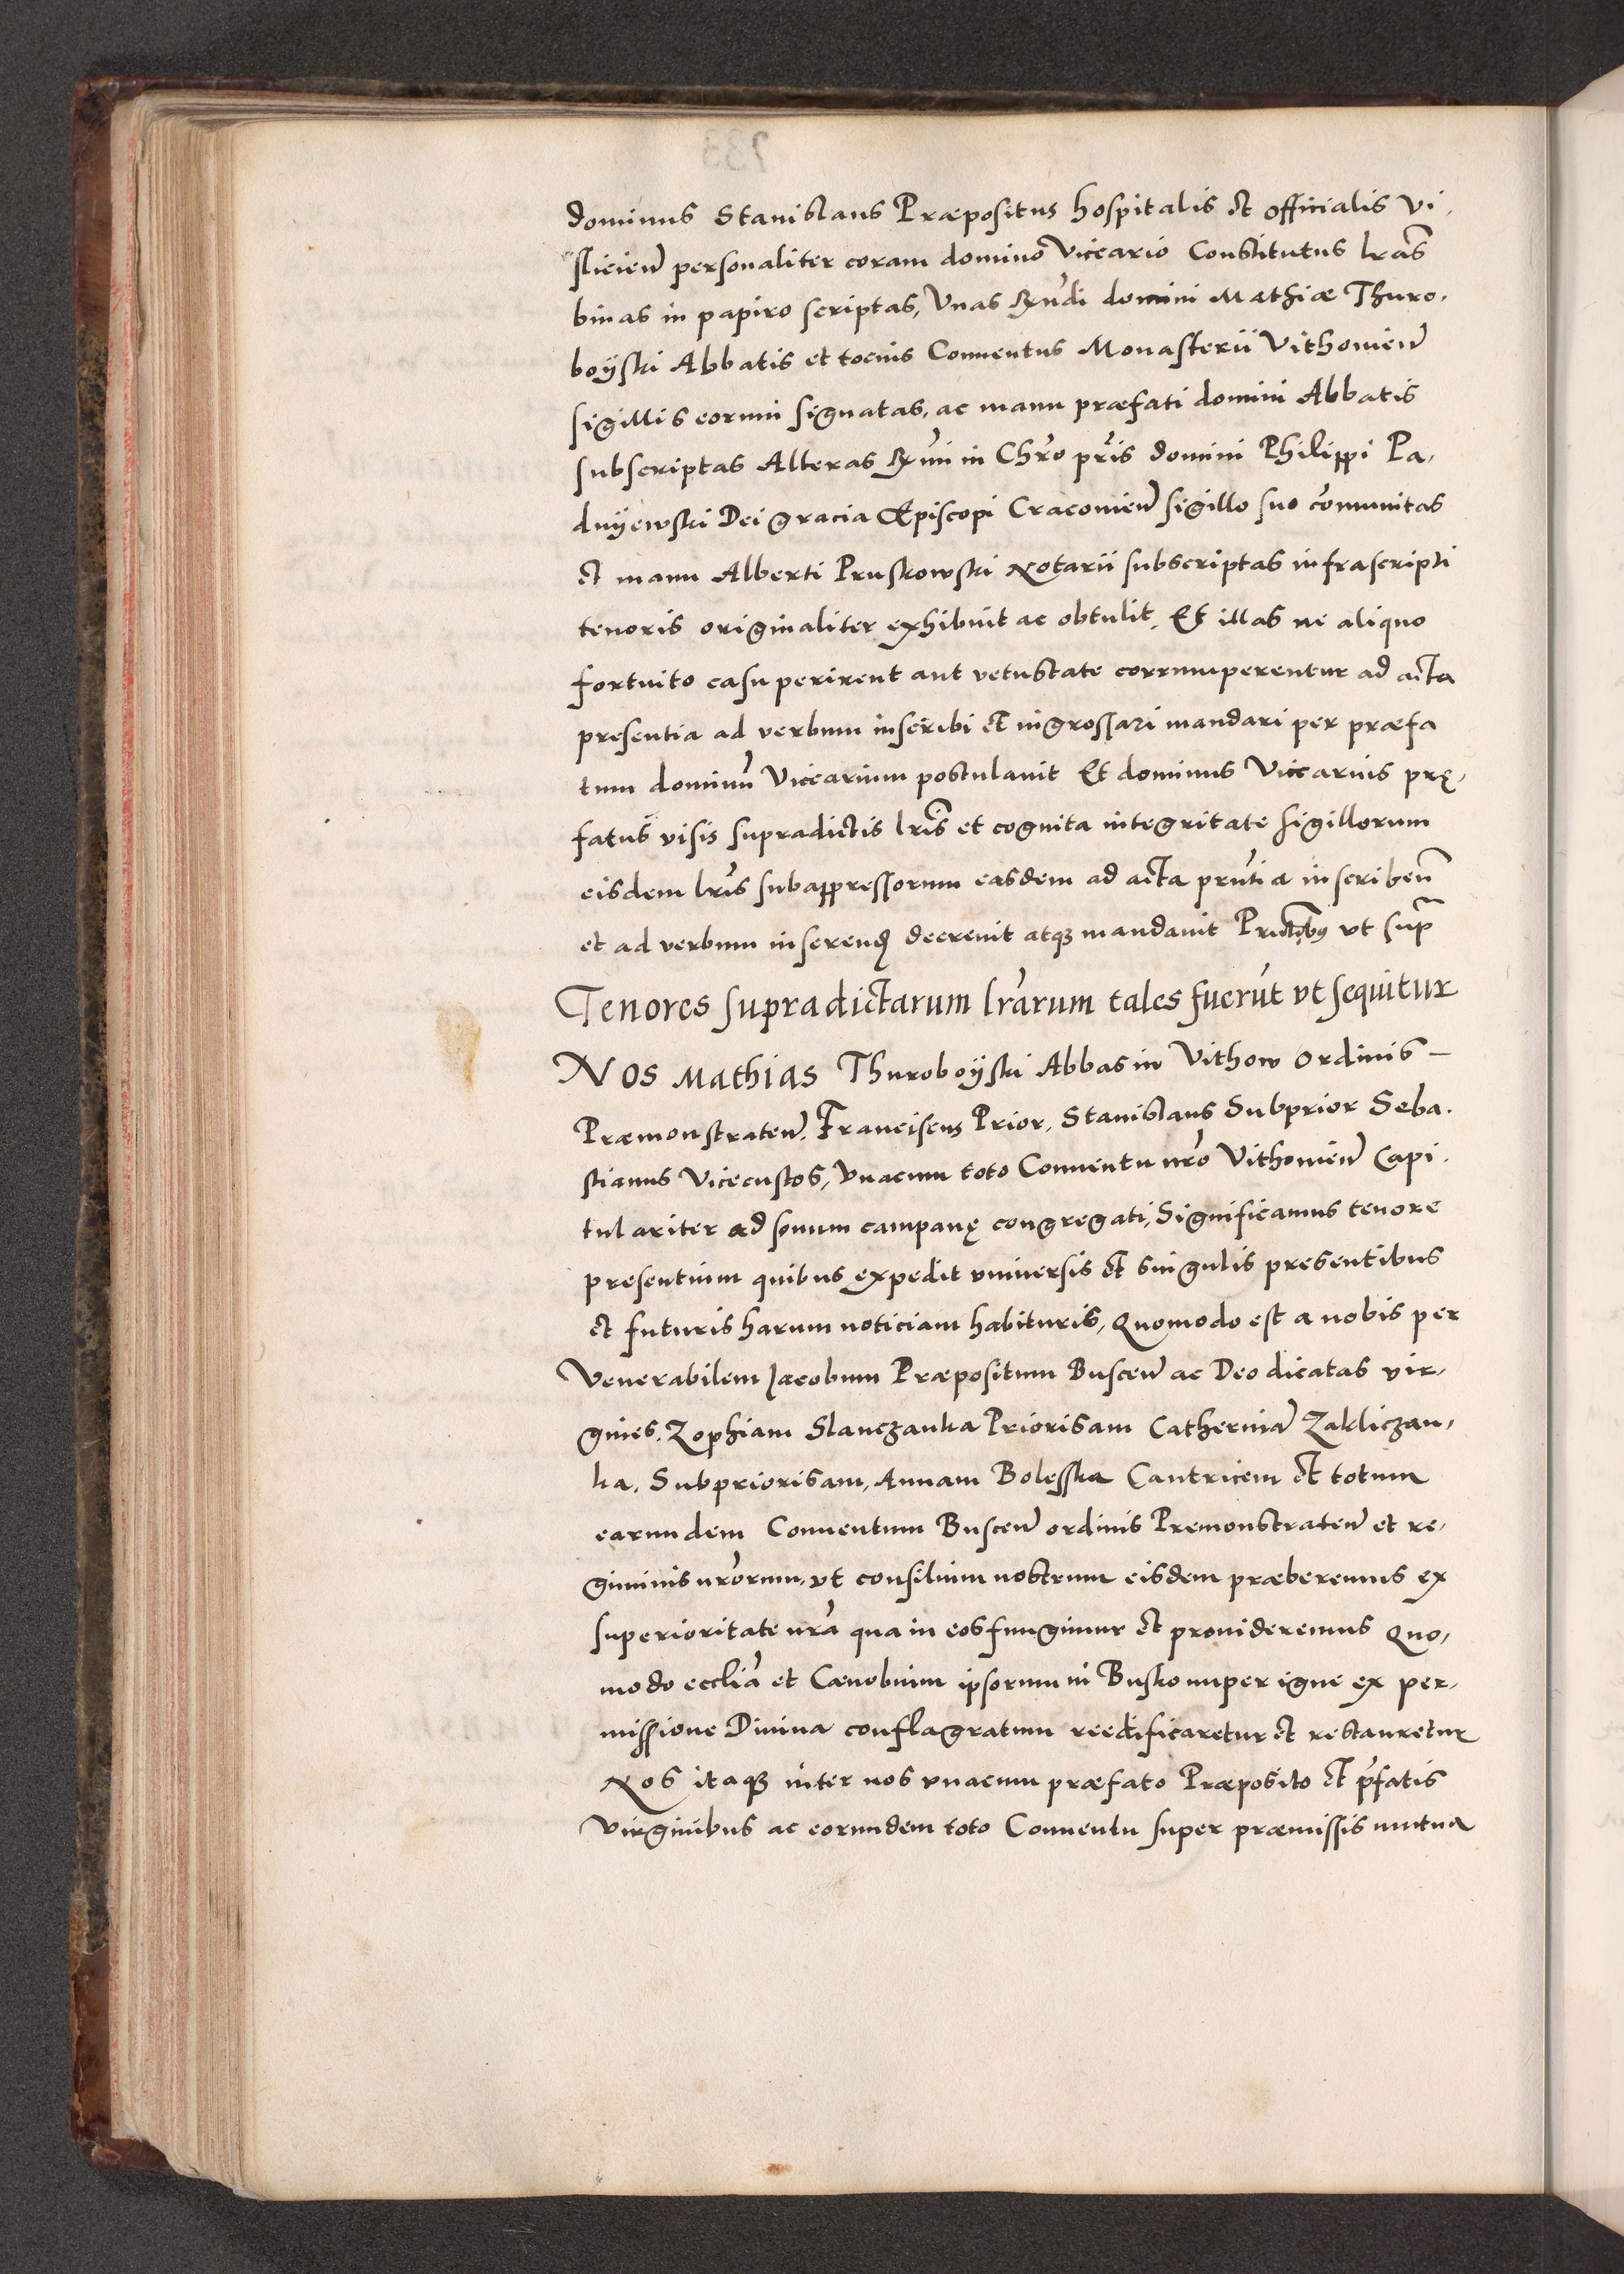 dominus Stanislaus Præpositus hospitalis et officialis Vi,
slicien̄ personaliter coram domino Viceario Constitutus lr̄as
binas in papiro scriptas, Vnas Rn̄di domini Mathiæ Thuro,
boÿski Abbatis et tocius Conuentus Monasterii Vithouien̄
sigillis eorum signatas, ac manu præfati domini Abbatis
subscriptas Alteras Rm̄i in Chr̄o pr̄is domini Philippi Pa,
dnÿewski Dei gracia Episcopi Cracouien̄ sigillo suo com̄unitas
et manu Alberti Pruskowski Notarii subscriptas infrascripti
tenoris originaliter exhibuit ac obtulit, Et illas ne aliquo
fortuito casu perirent aut vetustate corrumperentur ad acta
presentia ad verbum inscribi et ingrossari mandari per præfa
tum dominū Vicearium postulauit Et dominus Vicearius prę,
fatus visis supradictis lr̄is et cognita integritate sigillorum
eisdem lr̄is subappressorum easdem ad acta prn̄tia inscriben̄
et ad verbum inserend decreuit atq3 mandauit ut sup̄
Tenores supradictarum lr̄arum tales fuerūt vt sequitur
Nos Mathias Thuroboÿski Abbas in Vithow ordinis –
Præmonstraten̄, Franciscus Prior, Stanislaus Subprior Seba,
stianus Vicecustos, Vnacum toto Conuentu nr̄o Vithouien̄ Capi,
tulariter ad sonum campanę congregati, Significamus tenore
presentium quibus expedit vniuersis et singulis presentibus
et futuris harum noticiam habituris, Quomodo est a nobis per
Venerabilem Jacobum Præpositum Buscen̄ ac Deo dicatas vir,
gines, Zophiam Slanczanka Priorisam Catherinā Zakliczan,
ka, Subpriorisam, Annam Bolesska Cantricem et totum
earundem Conuentum Buscen̄ ordinis Premonstraten̄ et re,
giminis nr̄orum, vt consilium nostrum eisdem præberemus ex
superioritate nr̄a qua in eos fungimur et prouideremus Quo,
modo eccliā et Cænobium ipsorum in Busko nuper igne ex per,
missione Diuina conflagratum reedificaretur et restauretur
Nos itaq3 inter nos vnacum præfato Præposito et p̄fatis
Virginibus ac eorundem toto Conuentu super præmissis mutua